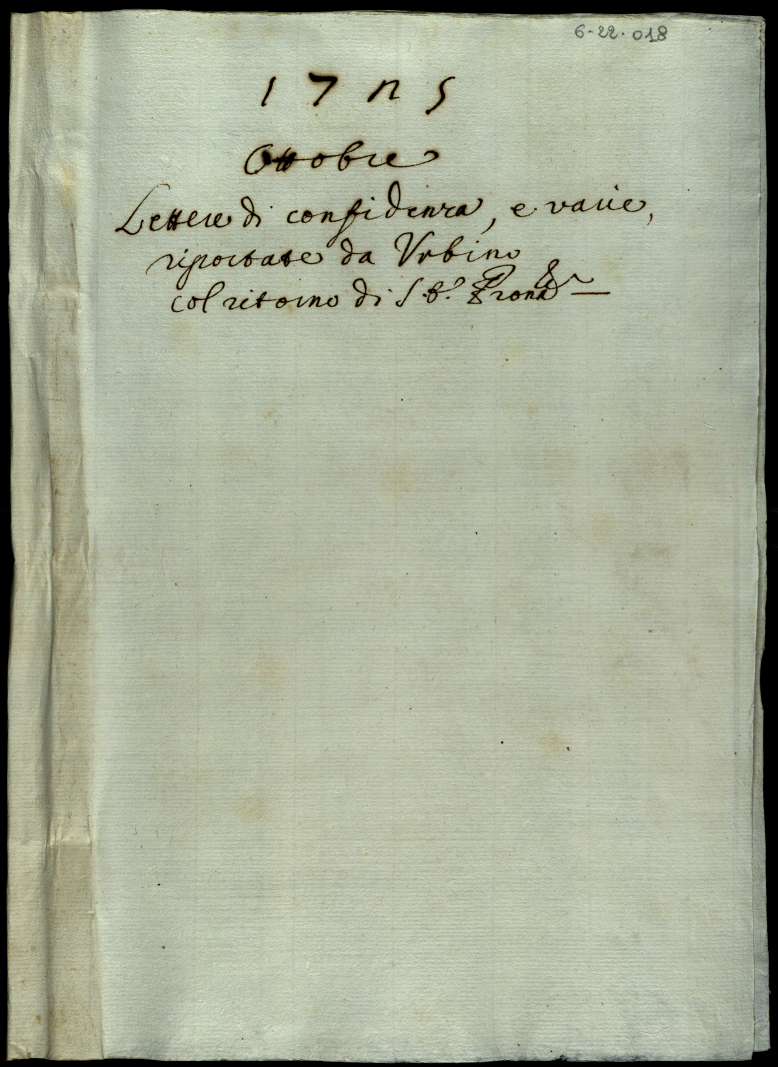 6-22-018
1725
Ottobre
Lettere di confidenza, e varie,
riportate da Urbino
col ritorno di S. E.